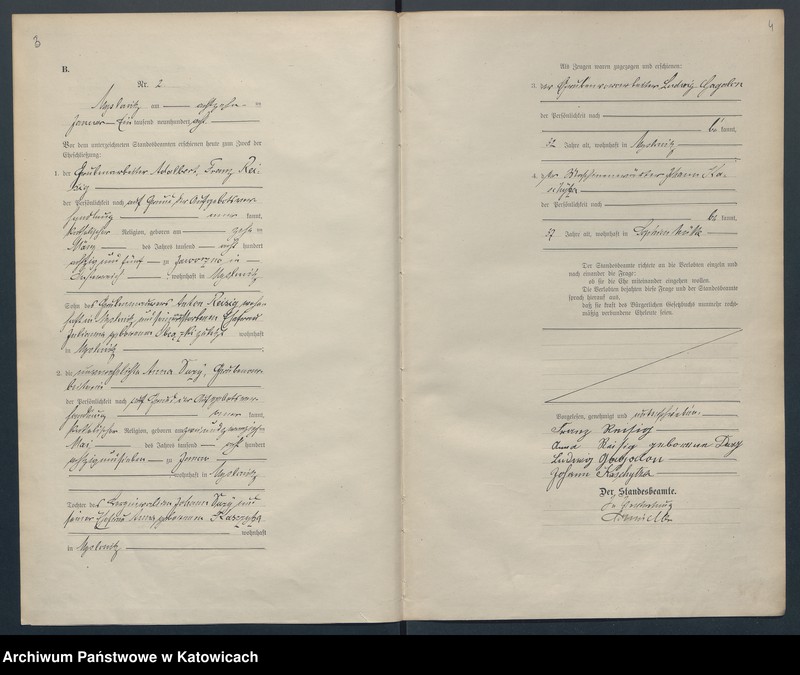 3
B.
Nr. 2
Myslowitz am achtzehn-
ten Januar Ein tausend neunhundert acht
Vor dem unterzeichneten Standesbeamten erschienen heute zum Zweck der
Eheschließung:
1. der Grubenarbeiter Adalbert, Franz Rei-
sig
der Persönlichkeit nach auf Grund der Aufgebotsver-
handlung kannt,
katholischer Religion, geboren am zehn-
März des Jahres tausend acht hundert
achtzig und fünf zu Jaworzno in
Oesterreich, wohnhaft in Myslowitz
Sohn des Anton Reisig, wohn-
haft in Myslowitz, und seiner verstorbenen Ehefrau
Julianna geborenen zuletzt wohnhaft
in Myslowitz
2. die unverehelichte Anna, Grubenar-
beiterin
der Persönlichkeit nach auf Grund der Aufgebotsver-
handlung kannt,
katholischer Religion, geboren am
Mai des Jahres tausend acht hundert
achtzig und sieben zu
wohnhaft in Myslowitz
Tochter des Berginvaliden Johann und
seiner Ehefrau Anna geborenen
wohnhaft
in Myslowitz
4
Als Zeugen waren zugezogen und erschienen:
3. der Grubenvorarbeiter Ludwig
der Persönlichkeit nach
be kannt,
32 Jahre alt, wohnhaft in Myslowitz
4. der Maschinenwärter Johann Ka-
der Persönlichkeit nach
be kannt,
37 Jahre alt, wohnhaft in
Der Standesbeamte richtete an die Verlobten einzeln und
nach einander die Frage:
ob sie die Ehe miteinander eingehen wollen.
Die Verlobten bejahten diese Frage und der Standesbeamte
sprach hierauf aus,
daß sie kraft des Bürgerlichen Gesetzbuchs nunmehr recht-
mäßig verbundene Eheleute seien.
Vorgelesen, genehmigt und unterschrieben
Franz Reisig
Anna Reisig geborene
Ludwig
Johann
Der Standesbeamte.
In Vertretung
Archiwum Państwowe w Katowicach